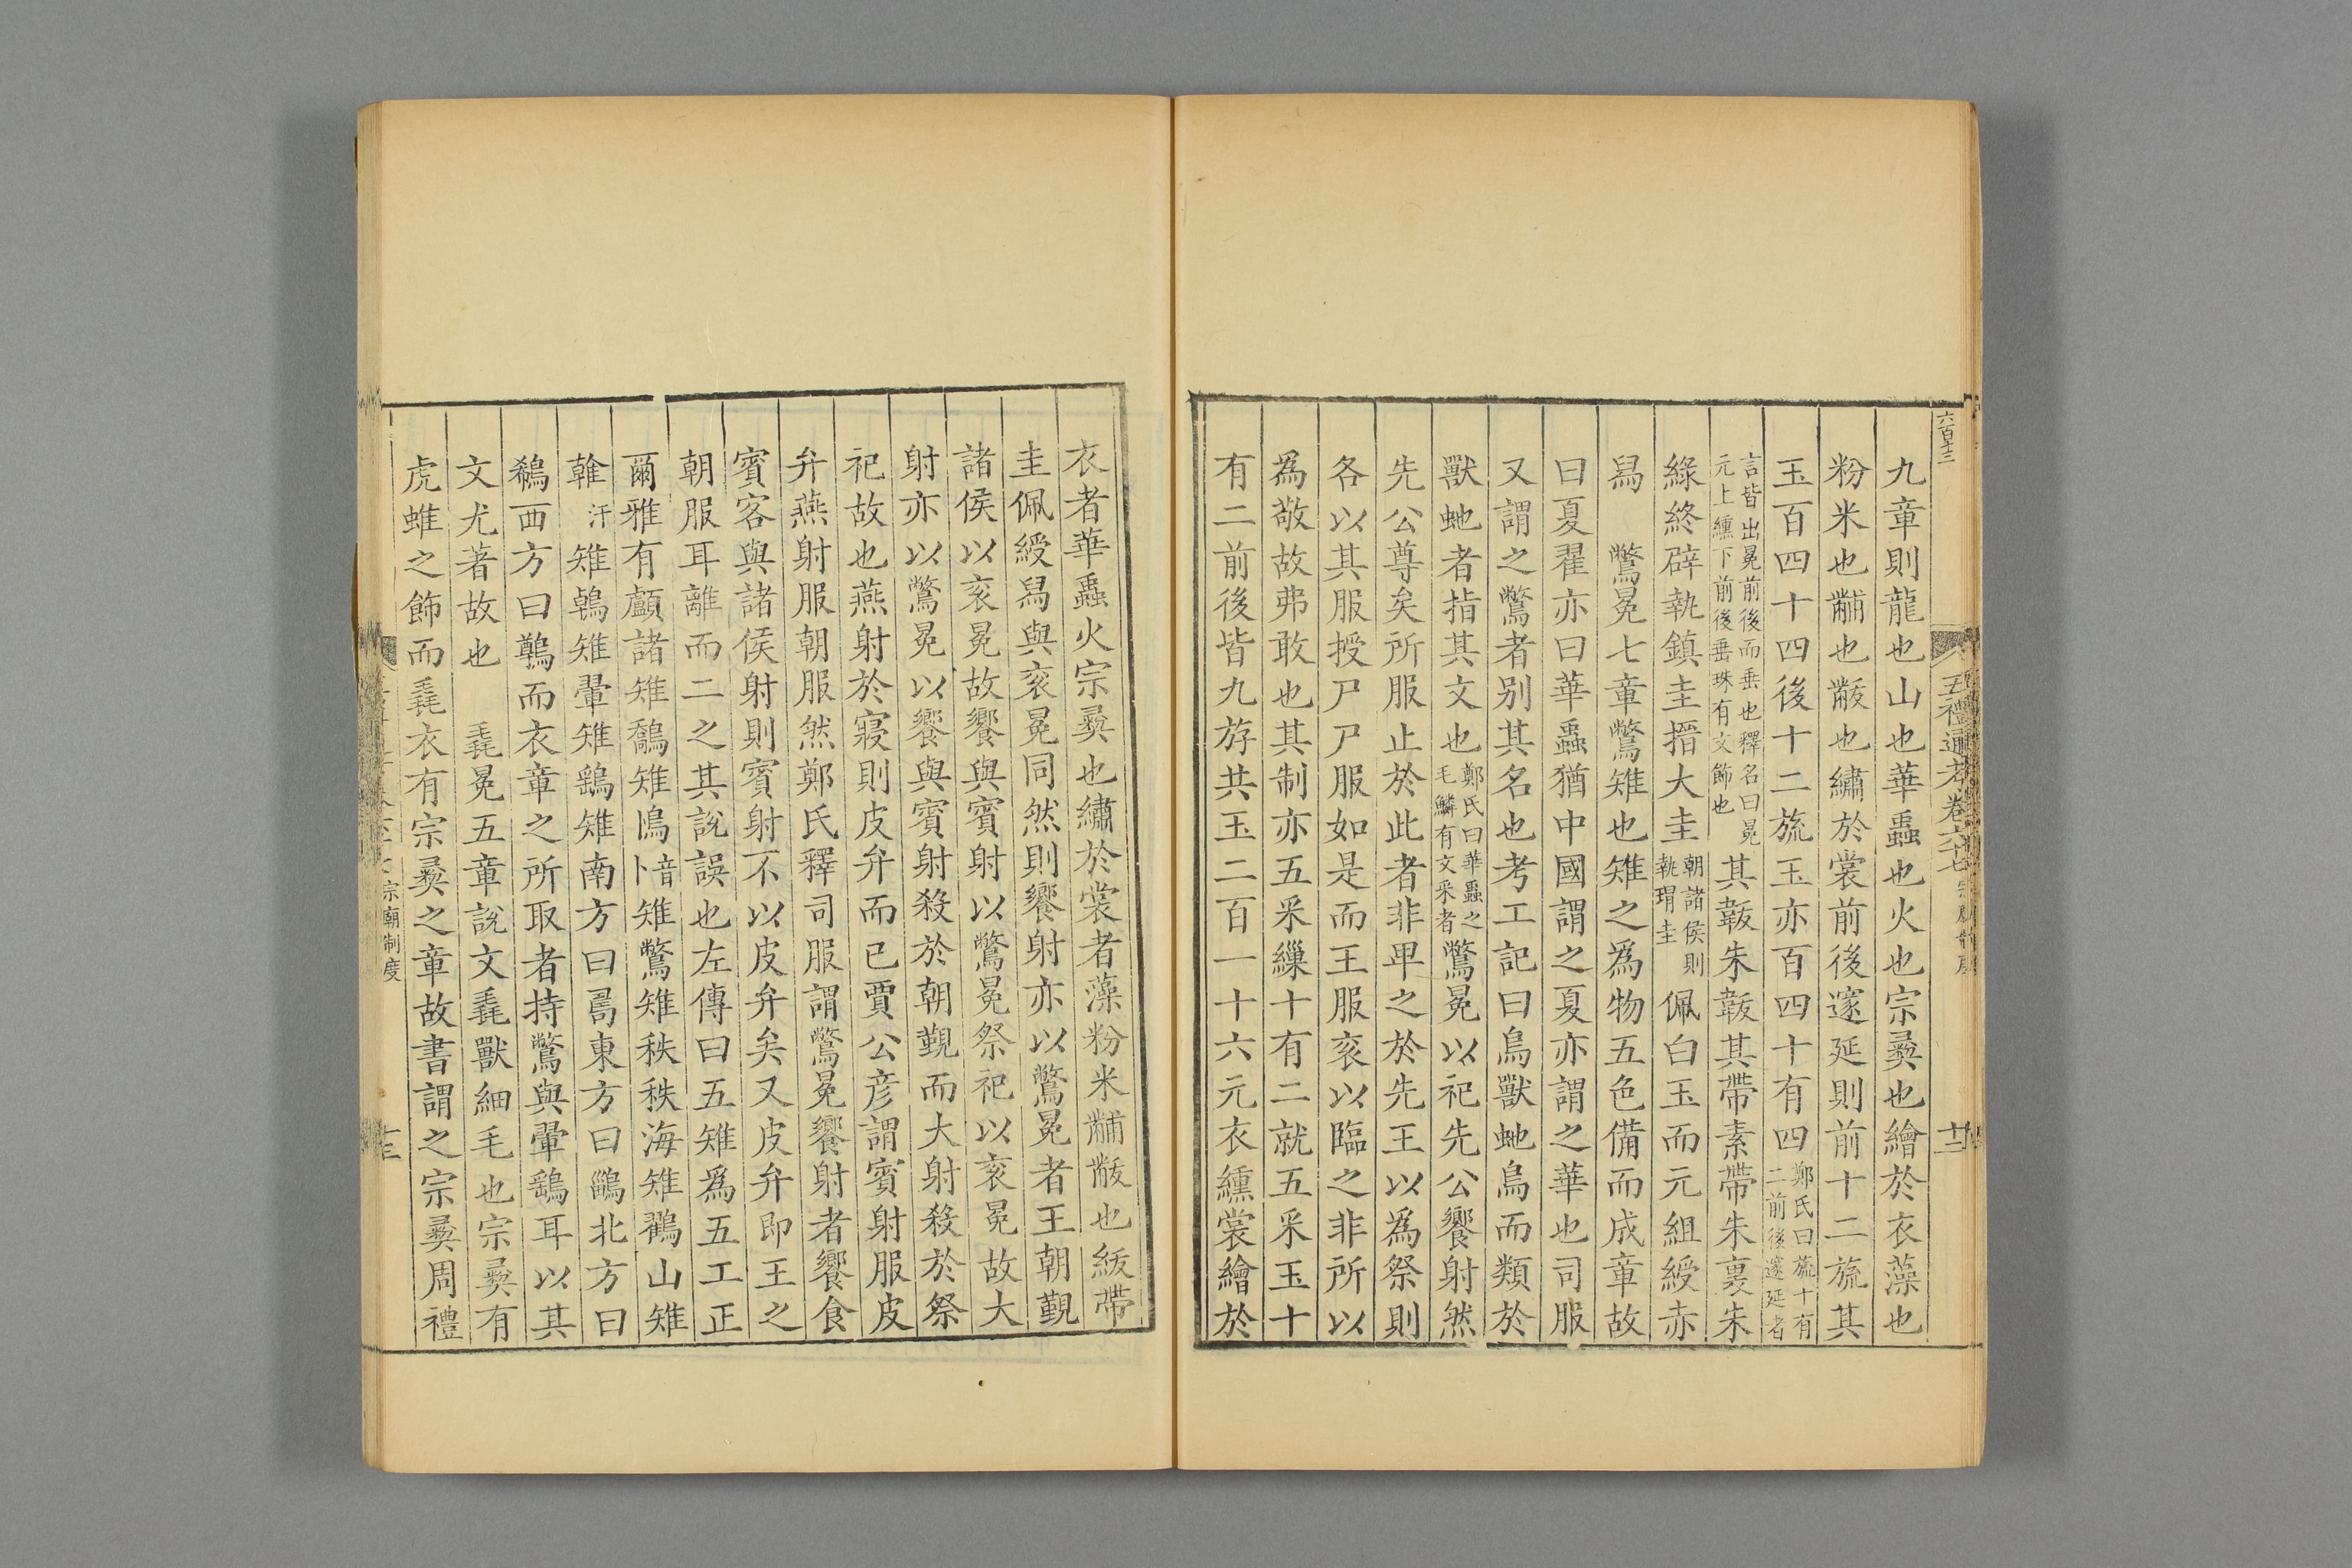 六百十三
五禮通考卷六十七
十二
九章則龍也山也華蟲也火也宗彝也繪於衣藻也
粉米也黼也黻也繡於裳前後邃延則前十二旒其
玉百四十四後十二旒玉亦百四十有四鄭氏曰旒十有二前後邃延者
言皆出冕前後而垂也釋名曰冕元上纁下前後垂珠有文飾也其韍朱韍其帶素帶朱裏朱
綠終辟執鎮圭搢大圭朝諸侯則執瑁圭佩白玉而元組綬赤
舄　鷩冕七章鷩雉也雉之為物五色備而成章故
曰夏翟亦曰華蟲猶中國謂之夏亦謂之華也司服
又謂之鷩者別其名也考工記曰鳥獸虵鳥而類於
獸虵者指其文也鄭氏曰華蟲之毛鱗有文采者鷩冕以祀先公饗射然
先公尊矣所服止於此者非卑之於先王以為祭則
各以其服授尸尸服如是而王服衮以臨之非所以
為敬故弗敢也其制亦五采繅十有二就五采玉十
有二前後皆九斿共玉二百一十六元衣纁裳繪於
衣者華蟲火宗彝也繡於裳者藻粉米黼黻也紱帶
圭佩綬舄與衮冕同然則饗射亦以鷩冕者王朝覲
諸侯以衮冕故饗與賓射以鷩冕祭祀以衮冕故大
射亦以鷩冕以饗與賓射殺於朝覲而大射殺於祭
祀故也燕射於寢則皮弁而已賈公彥謂賓射服皮
弁燕射服朝服然鄭氏釋司服謂鷩冕饗射者饗食
賓客與諸侯射則賓射不以皮弁矣又皮弁即王之
朝服耳離而二之其說誤也左傳曰五雉為五工正
爾雅有鸕諸雉鷮雉鳪音卜雉鷩雉秩秩海雉鸐山雉
雗汗雉鵫雉翬雉鷂雉南方曰𢏚東方曰鶅北方曰
鵗西方曰鷷而衣章之所取者持鷩與翬鷂耳以其
文尤著故也　毳冕五章說文毳獸細毛也宗彝有
虎蜼之飾而毳衣有宗彝之章故書謂之宗彝周禮
宗廟制度
十三